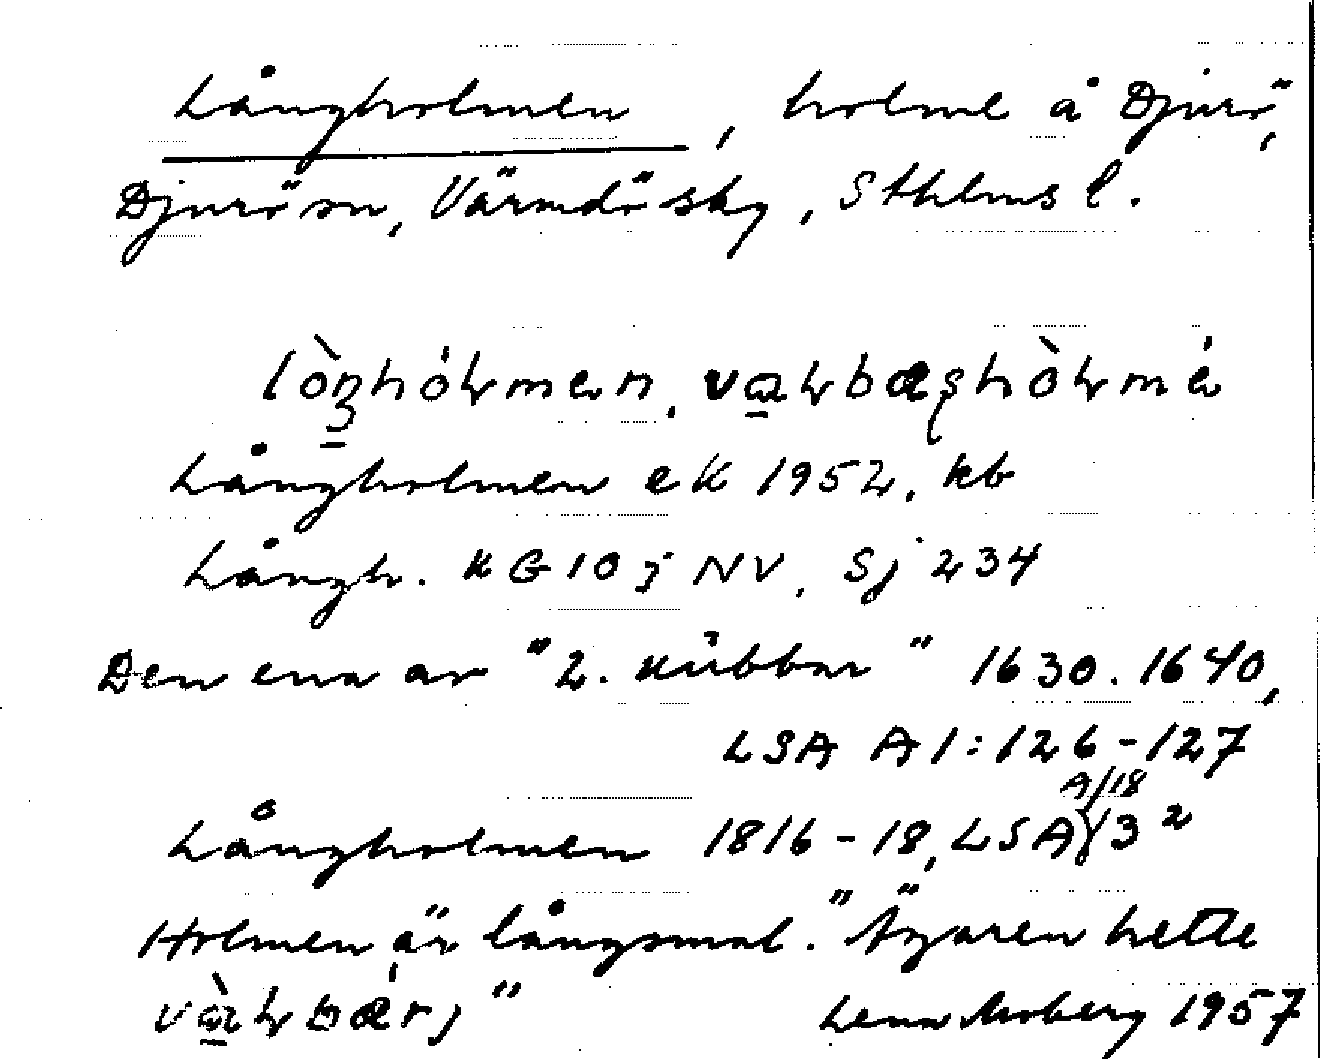 Långholmen, holme å Djurö,
Djurö sn, Värmdö sky, Sthlms l.
Långholmen eK 1952, kb
Långh. KG 10 j NV, Sj 234
Den ena av "2. Kübbar" 1630. 1640,
LSA A 1:126-127
A/18
Långholmen 1816-18, LSA 3²
Holmen är långsmal. "Ägaren hette
Lena Moberg 1957